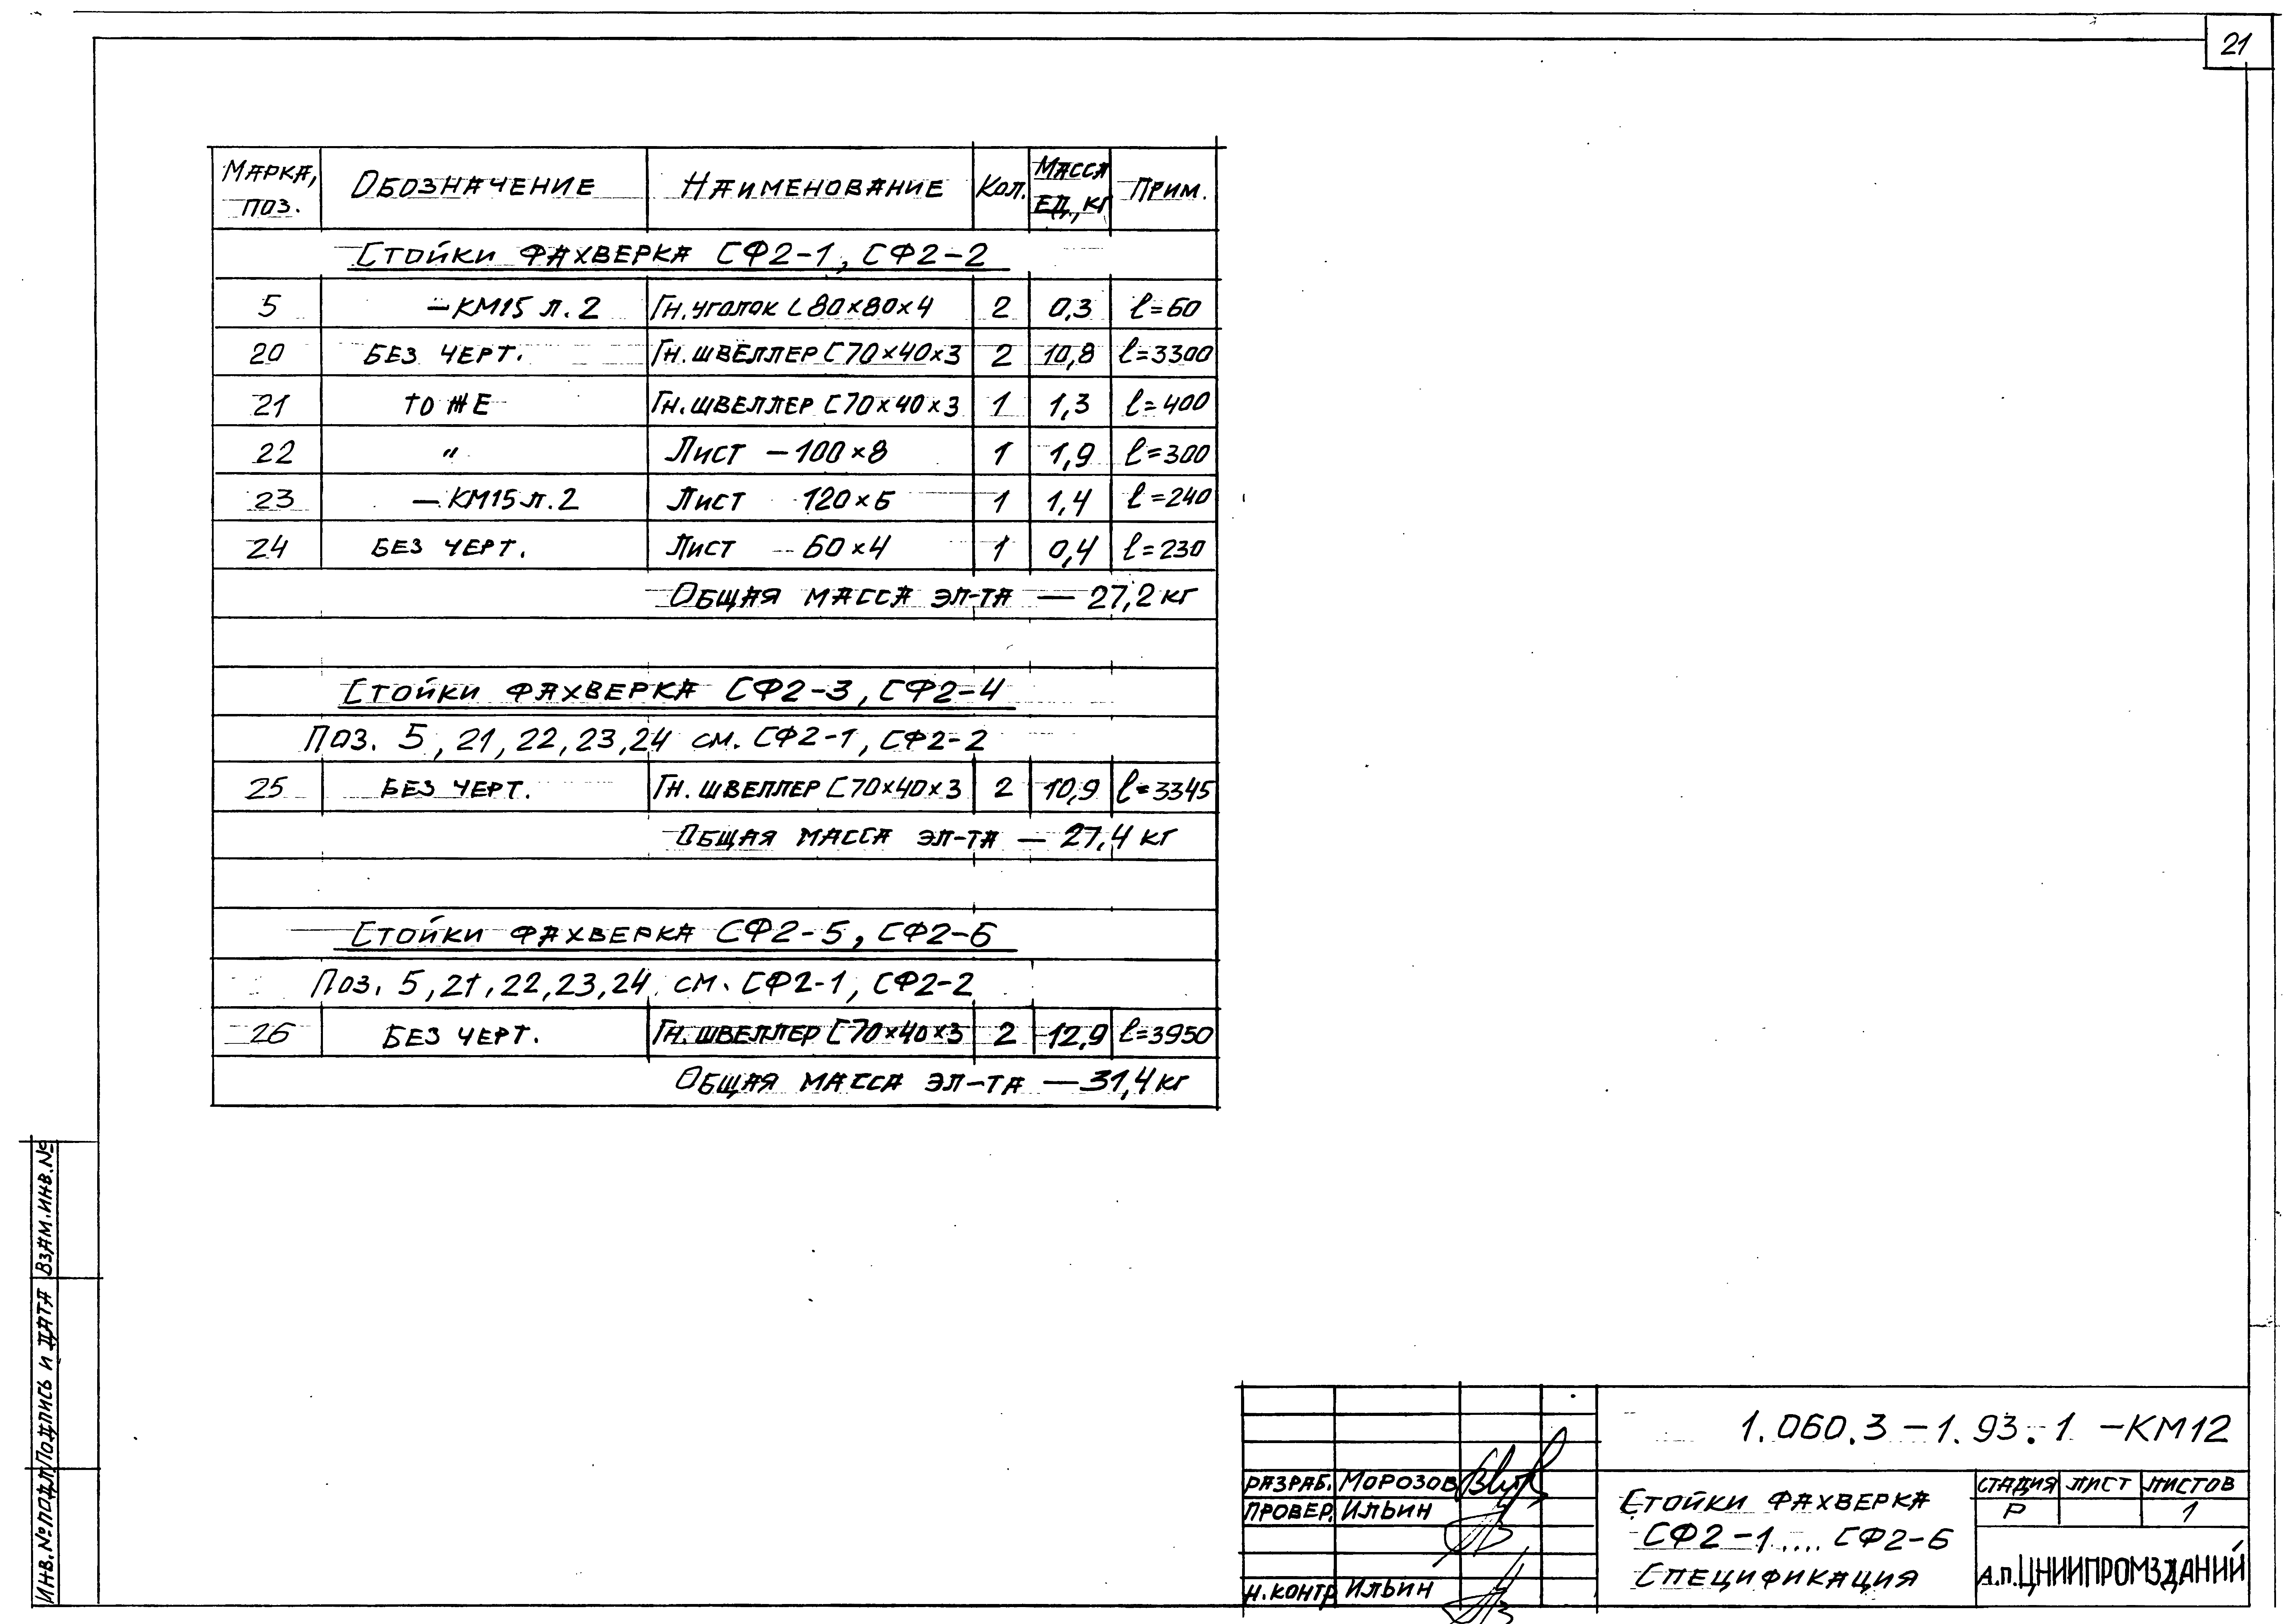 21
Марка, поз. Обозначение Наименование Кол. Масса ед., кг Прим.
Стойки фахверка СФ2-1, СФ2-2
5 —КМ15 л.2 Гн. уголок L 80×80×4 2 0,3 ℓ=60
20 Без черт. Гн. швеллер [ 70×40×3 2 10,8 ℓ=3300
21 То же Гн. швеллер [ 70×40×3 1 1,3 ℓ=400
22 " Лист —100×8 1 1,9 ℓ=300
23 —КМ15 л.2 Лист 120×6 1 1,4 ℓ=240
24 Без черт. Лист —60×4 1 0,4 ℓ=230
Общая масса эл-та — 27,2 кг
Стойки фахверка СФ2-3, СФ2-4
Поз. 5, 21, 22, 23, 24 см. СФ2-1, СФ2-2
25 Без черт. Гн. швеллер [ 70×40×3 2 10,9 ℓ=3345
Общая масса эл-та — 27,4 кг
Стойки фахверка СФ2-5, СФ2-6
Поз. 5, 21, 22, 23, 24 см. СФ2-1, СФ2-2
26 Без черт. Гн. швеллер [ 70×40×3 2 12,9 ℓ=3950
Общая масса эл-та — 31,4 кг
Инв. № подл. Подпись и дата Взам. инв. №
1.060.3-1.93.1 -КМ12
Разраб. Морозов
Провер. Ильин
Н. контр. Ильин
Стойки фахверка
СФ2-1.... СФ2-6
Спецификация
Стадия Лист Листов
Р 1
А.п. ЦНИИПРОМЗДАНИЙ